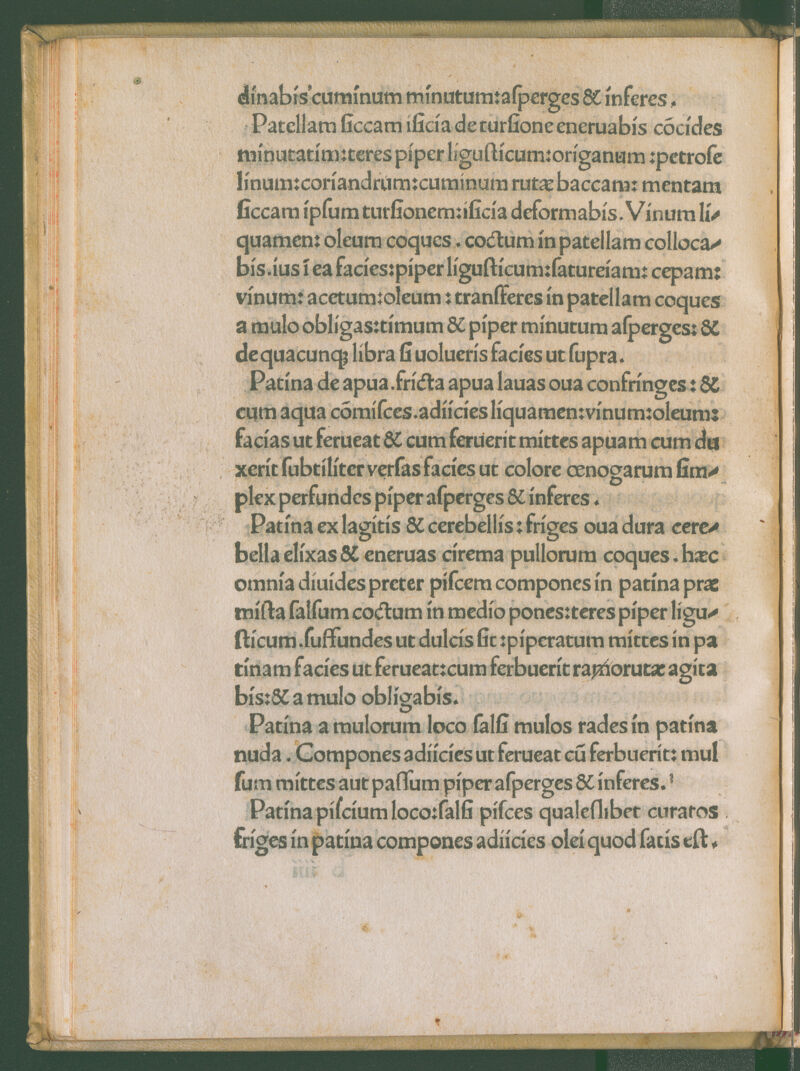 dínabís cumínum mínutum:aſperges & ínferes.
Patellam ſiccam iſicía de turſione eneruabís cōcídes
mínutatím:teres píper líguſtícum:oríganum :petroſe
línum:coríandrum:cuminum rutæ baccam: mentam
ſiccam ípſum turſionem:iſicía deformabís. Vínum lí⸗
quamen: oleum coques. coctum ín patellam colloca⸗
bís.íus ī ea facíes:píper líguſtícum:ſatureíam: cepam:
vínum: acetum:oleum : tranſferes ín patellam coques
a mulo oblígas:tímum & píper mínutum aſperges: &
de quacunqꝫ líbra ſi uoluerís facíes ut ſupra.
Patína de apua.frícta apua lauas oua confrínges : &
cum aqua cōmíſces.adíícíes líquamen:vínum:oleum:
facías ut ferueat & cum feruerít míttes apuam cum du
xerít ſubtílíter verſas facíes ut colore œnogarum ſim⸗
plex perfundes píper aſperges & ínferes.
Patína ex lagítís & cerebellís : fríges oua dura cere⸗
bella elíxas & eneruas círema pullorum coques. hæc
omnía díuídes preter píſcem compones ín patína præ
míſta ſalſum coctum ín medío pones:teres píper lígu⸗
ſtícum.ſuffundes ut dulcís ſit :píperatum míttes ín pa
tínam facíes ut ferueat:cum ferbuerít rutæ agíta
bís:& a mulo oblígabís.
Patína a mulorum loco ſalſi mulos rades ín patína
nuda. Compones adíícíes ut ferueat cū ferbuerít: mul
ſum míttes aut paſſum píper aſperges & ínferes.
Patína píſcíum loco:ſalſi píſces qualeſlíbet curatos
fríges ín patína compones adíícíes oleí quod ſatís eſt.